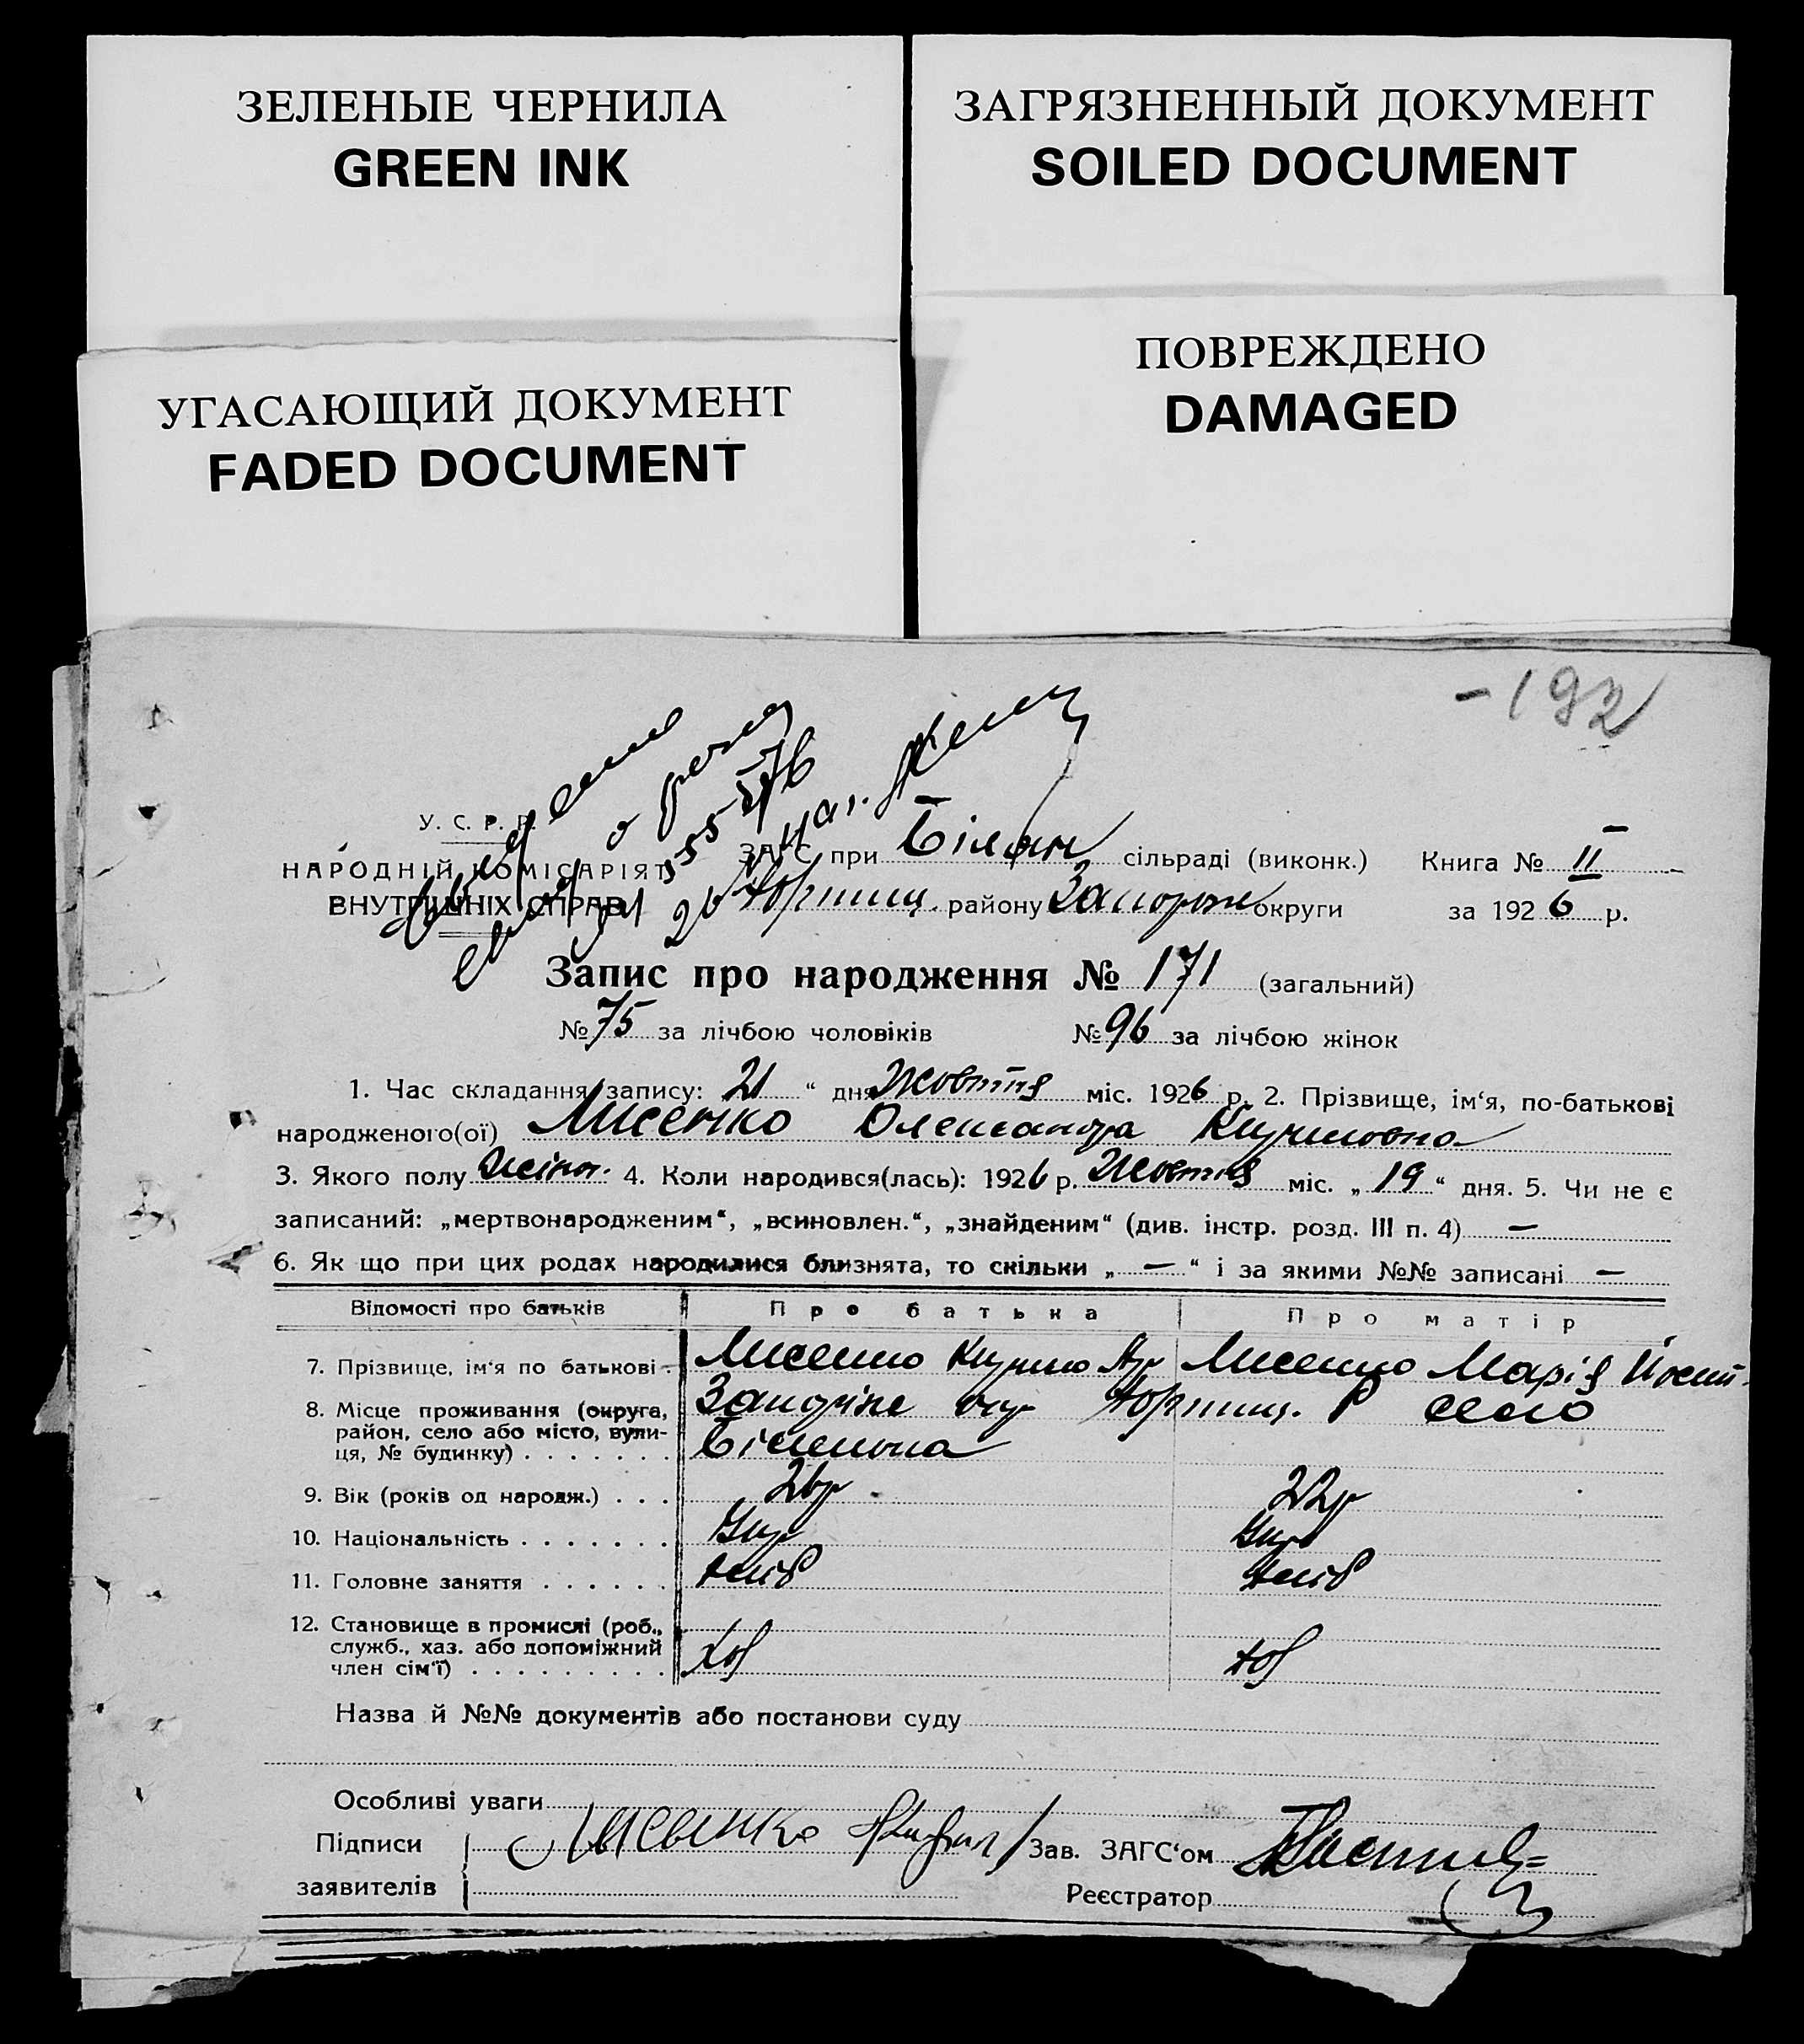 ЗЕЛЕНЫЕ ЧЕРНИЛА
GREEN INK
ЗАГРЯЗНЕННЫЙ ДОКУМЕНТ
SOILED DOCUMENT
УГАСАЮЩИЙ ДОКУМЕНТ
FADED DOCUMENT
ПОВРЕЖДЕНО
DAMAGED
-192
У. С. Р. Р.
НАРОДНІЙ КОМІСАРІЯТ
ВНУТРІШНІХ СПРАВ
ЗАГС при Білян сільраді (виконк.) Книга № II
Хортиц. району Запорож округи за 1926 р.
Запис про народження № 171 (загальний)
№ 75 за лічбою чоловіків № 96 за лічбою жінок
1. Час складання запису: 21 “ дня Жовтня міс. 1926 р. 2. Прізвище, ім‘я, по-батькові
народженого(ої) Лисенко Олександра Кириловна
3. Якого полу жіноч. 4. Коли народився(лась): 1926 р. Жовтня міс. „ 19 “ дня. 5. Чи не є
записаний: „мертвонародженим“, „всиновлен.“, „знайденим“ (див. інстр. розд. III п. 4) —
6. Як що при цих родах народилися близнята, то скільки „ — “ і за якими №№ записані —
Відомості про батьків Про батька Про матір
7. Прізвище, ім‘я по батькові Лисенко Кирило Лисенко Марія Йосип.
8. Місце проживання (округа, район, село або місто, вулиця, № будинку) . . . . . . . Запоріж окр Хортиц. Р село
Біленька
9. Вік (років од народж.) . . . 26р 22р
10. Національність . . . . . . . Укр Укр
11. Головне заняття . . . . . . хліб хліб
12. Становище в промислі (роб., служб., хаз. або допоміжний член сім‘ї) . . . . . . . . . Хоз хоз
Назва й №№ документів або постанови суду
Особливі уваги
Підписи Лисенко Кирил Зав. ЗАГС‘ом
заявителів Реєстратор